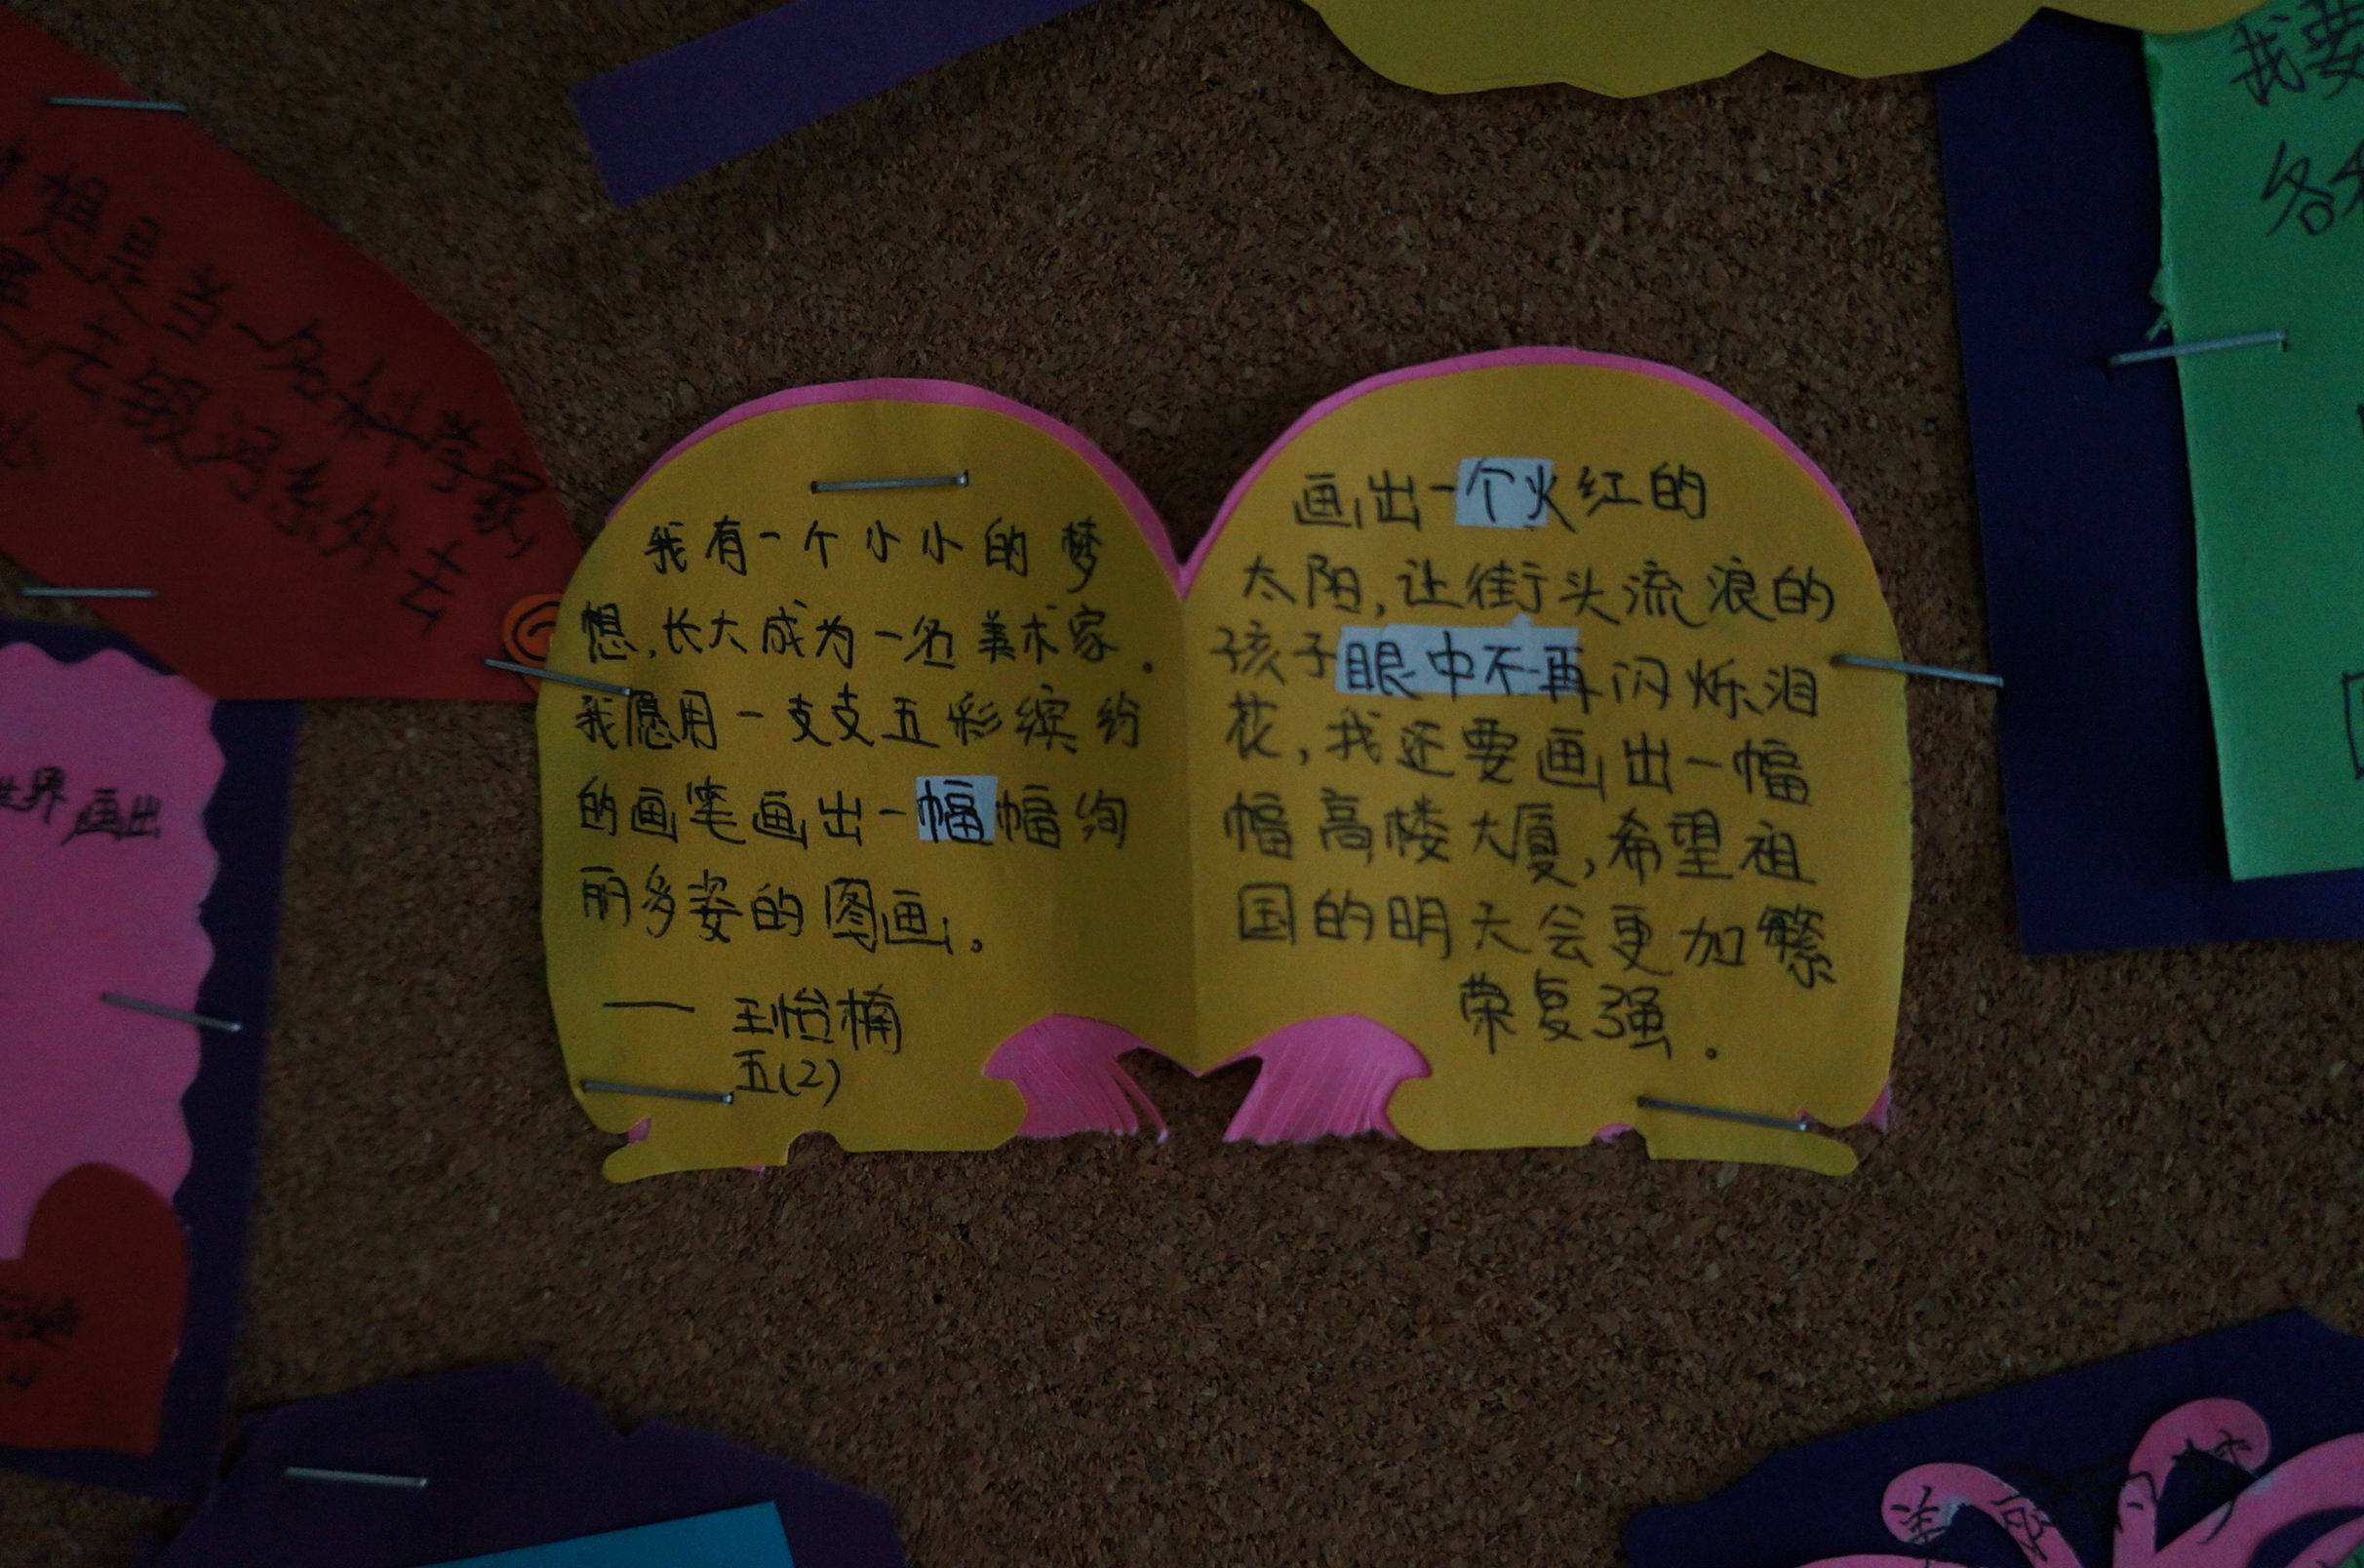 想是当一名科学家,
去银河系外去
世界画出
我有一个小小的梦
想,长大成为一名美术家.
我愿用一支支五彩缤纷
的画笔画出一幅幅绚
丽多姿的图画。
—— 王怡楠
五(2)
画出一个火红的
太阳,让街头流浪的
孩子眼中不再闪烁泪
花,我还要画出一幅
幅高楼大厦,希望祖
国的明天会更加繁
荣复强.
我要
各
美丽